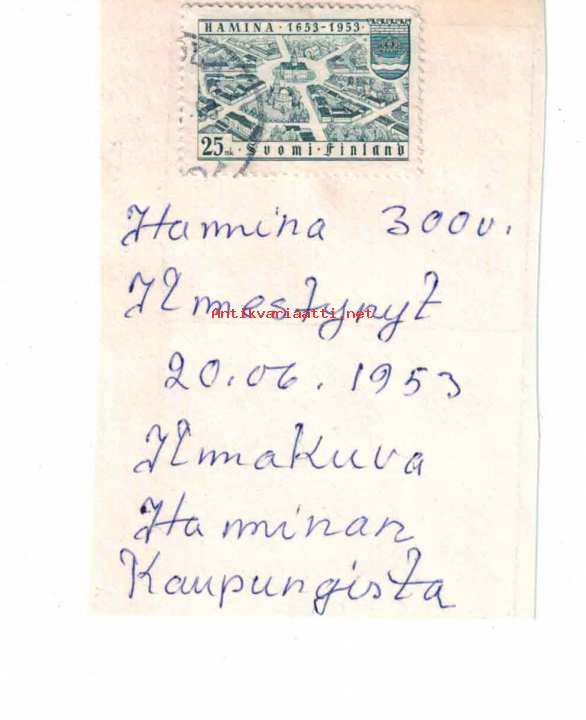 HAMINA · 1653-1953 ·
25 mk · Suomi · Finland
Hamina 300v.
Ilmestynyt
Antikvariaatti.net
20.06.1953
Ilmakuva
Haminan
Kaupungista